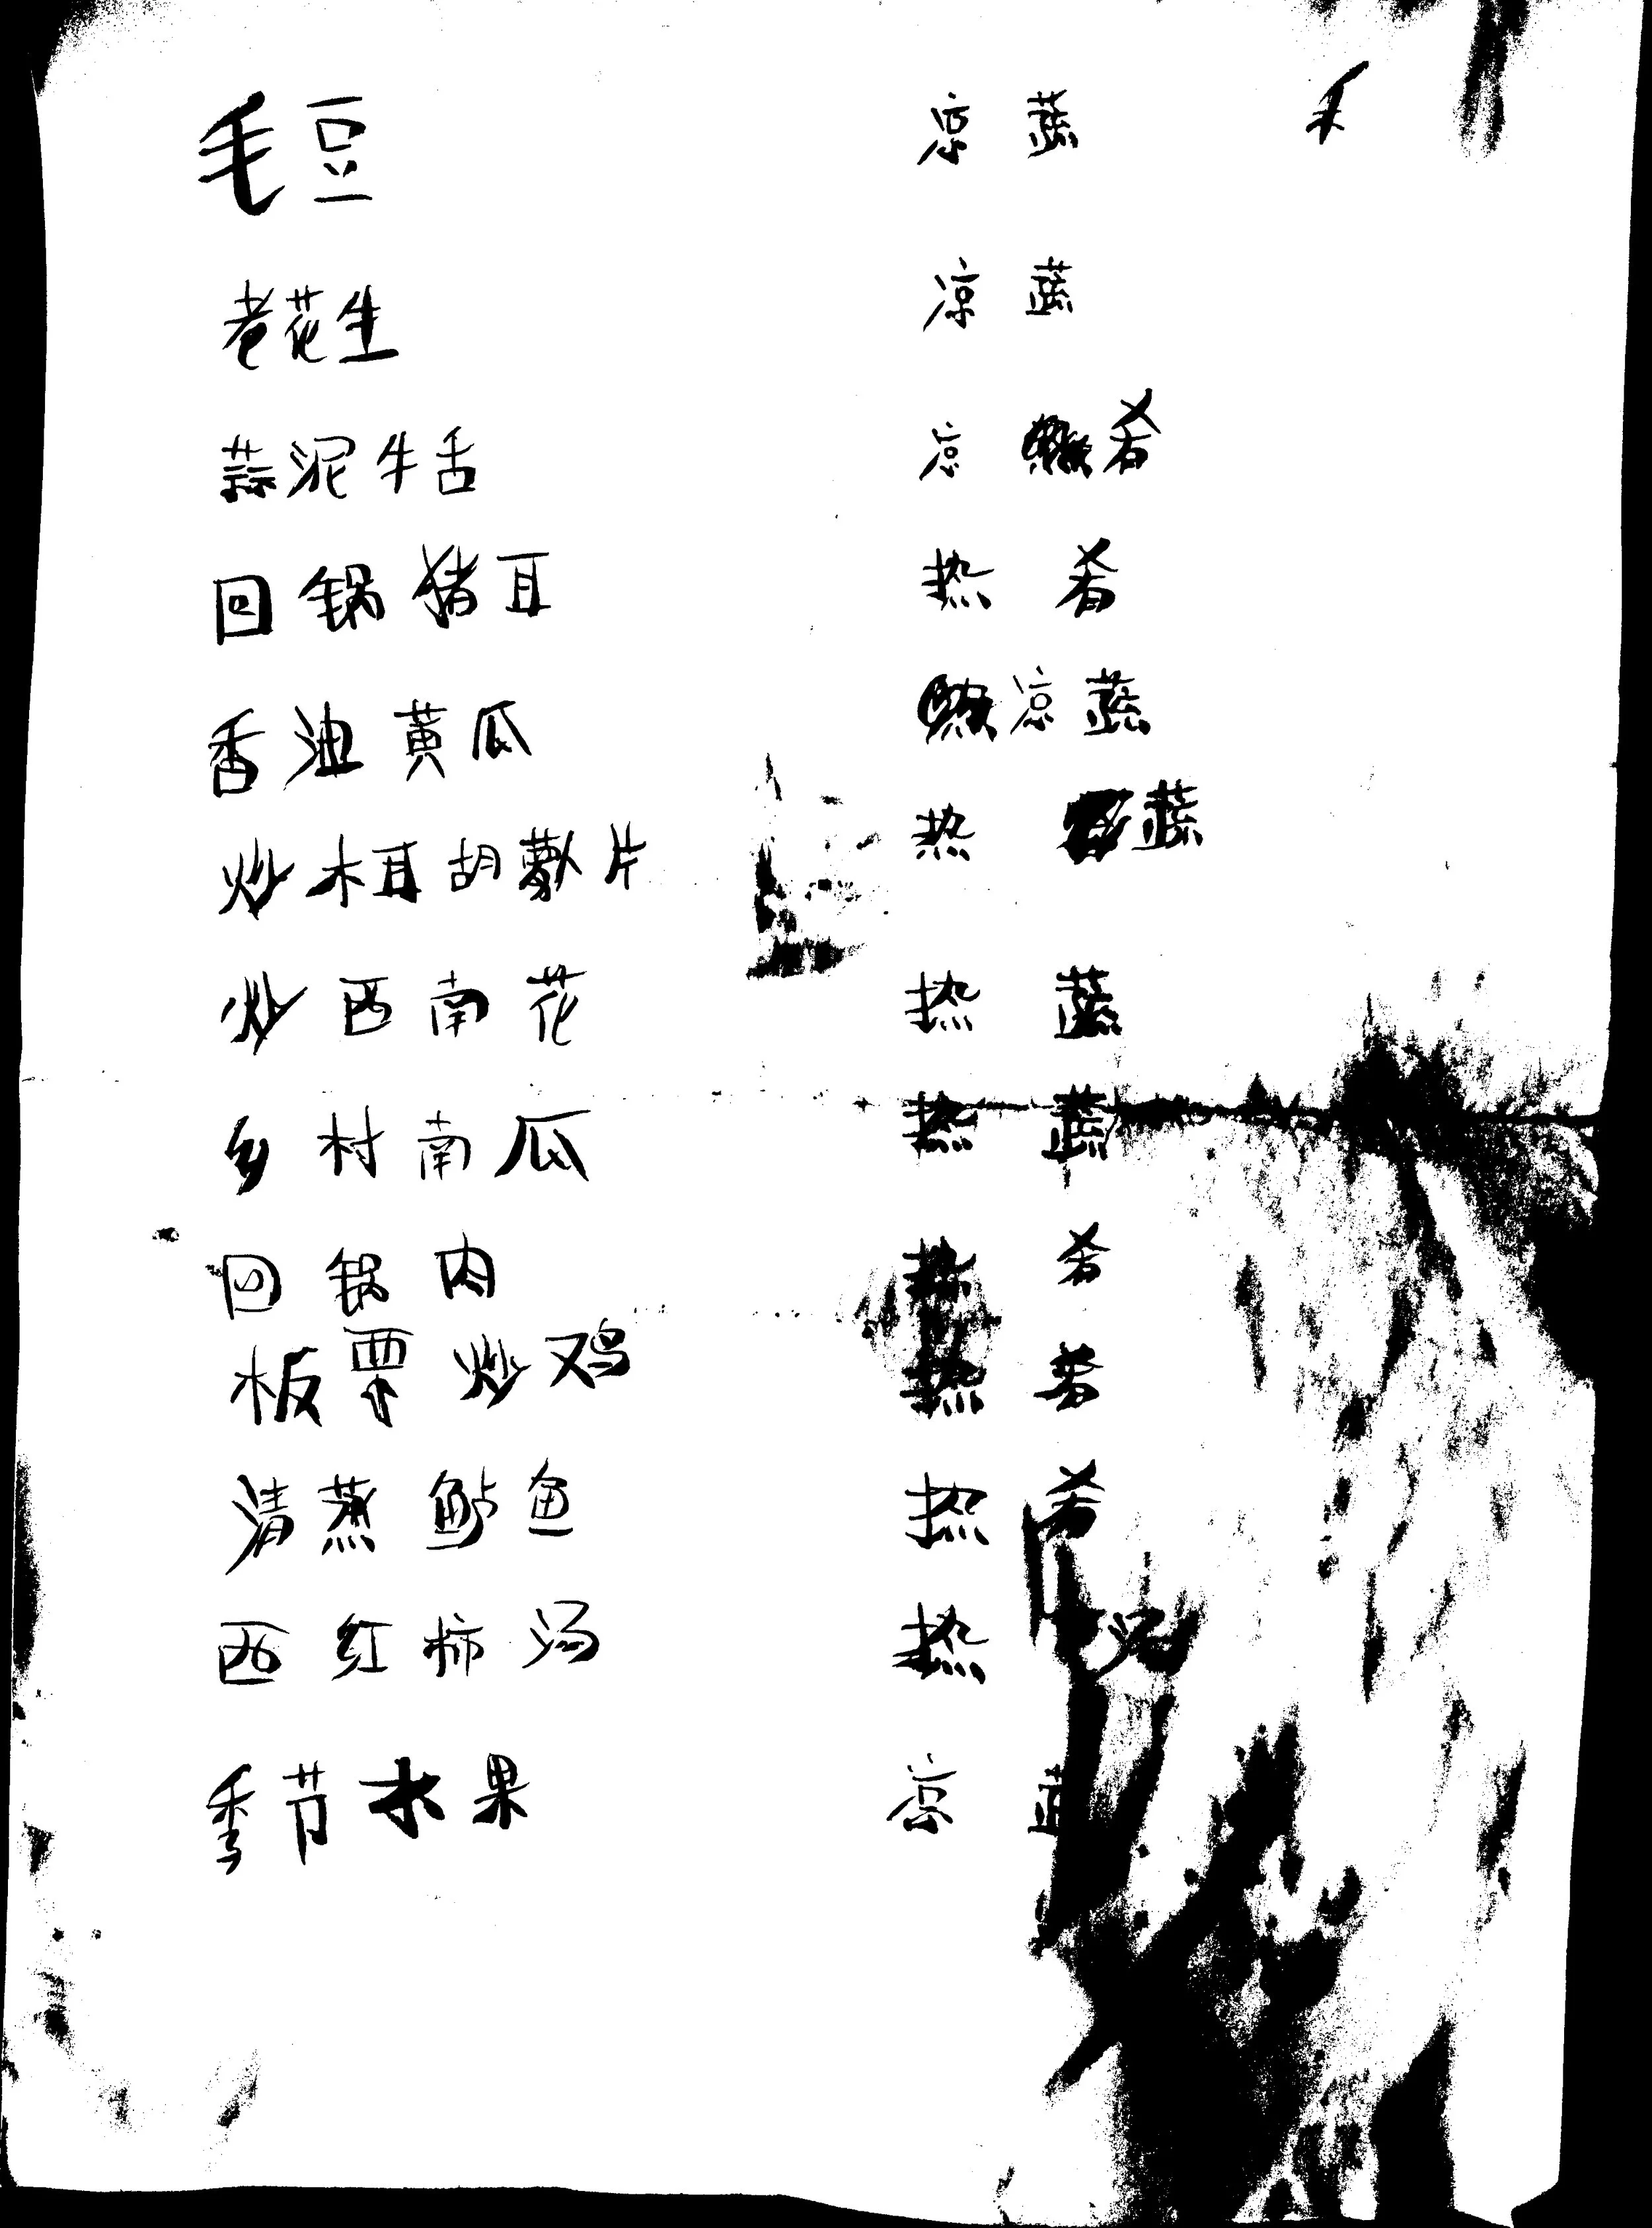 毛豆 凉 蔬
老花生 凉 蔬
蒜泥牛舌 凉 肴
回锅猪耳 热 肴
香油黄瓜 凉 蔬
炒木耳胡萝卜片 热 蔬
炒西南花 热 蔬
乡村南瓜 热 蔬
回锅肉 热 肴
板栗炒鸡 热 肴
清蒸鲇鱼 热 肴
西红柿汤 热 汤
季节水果 凉